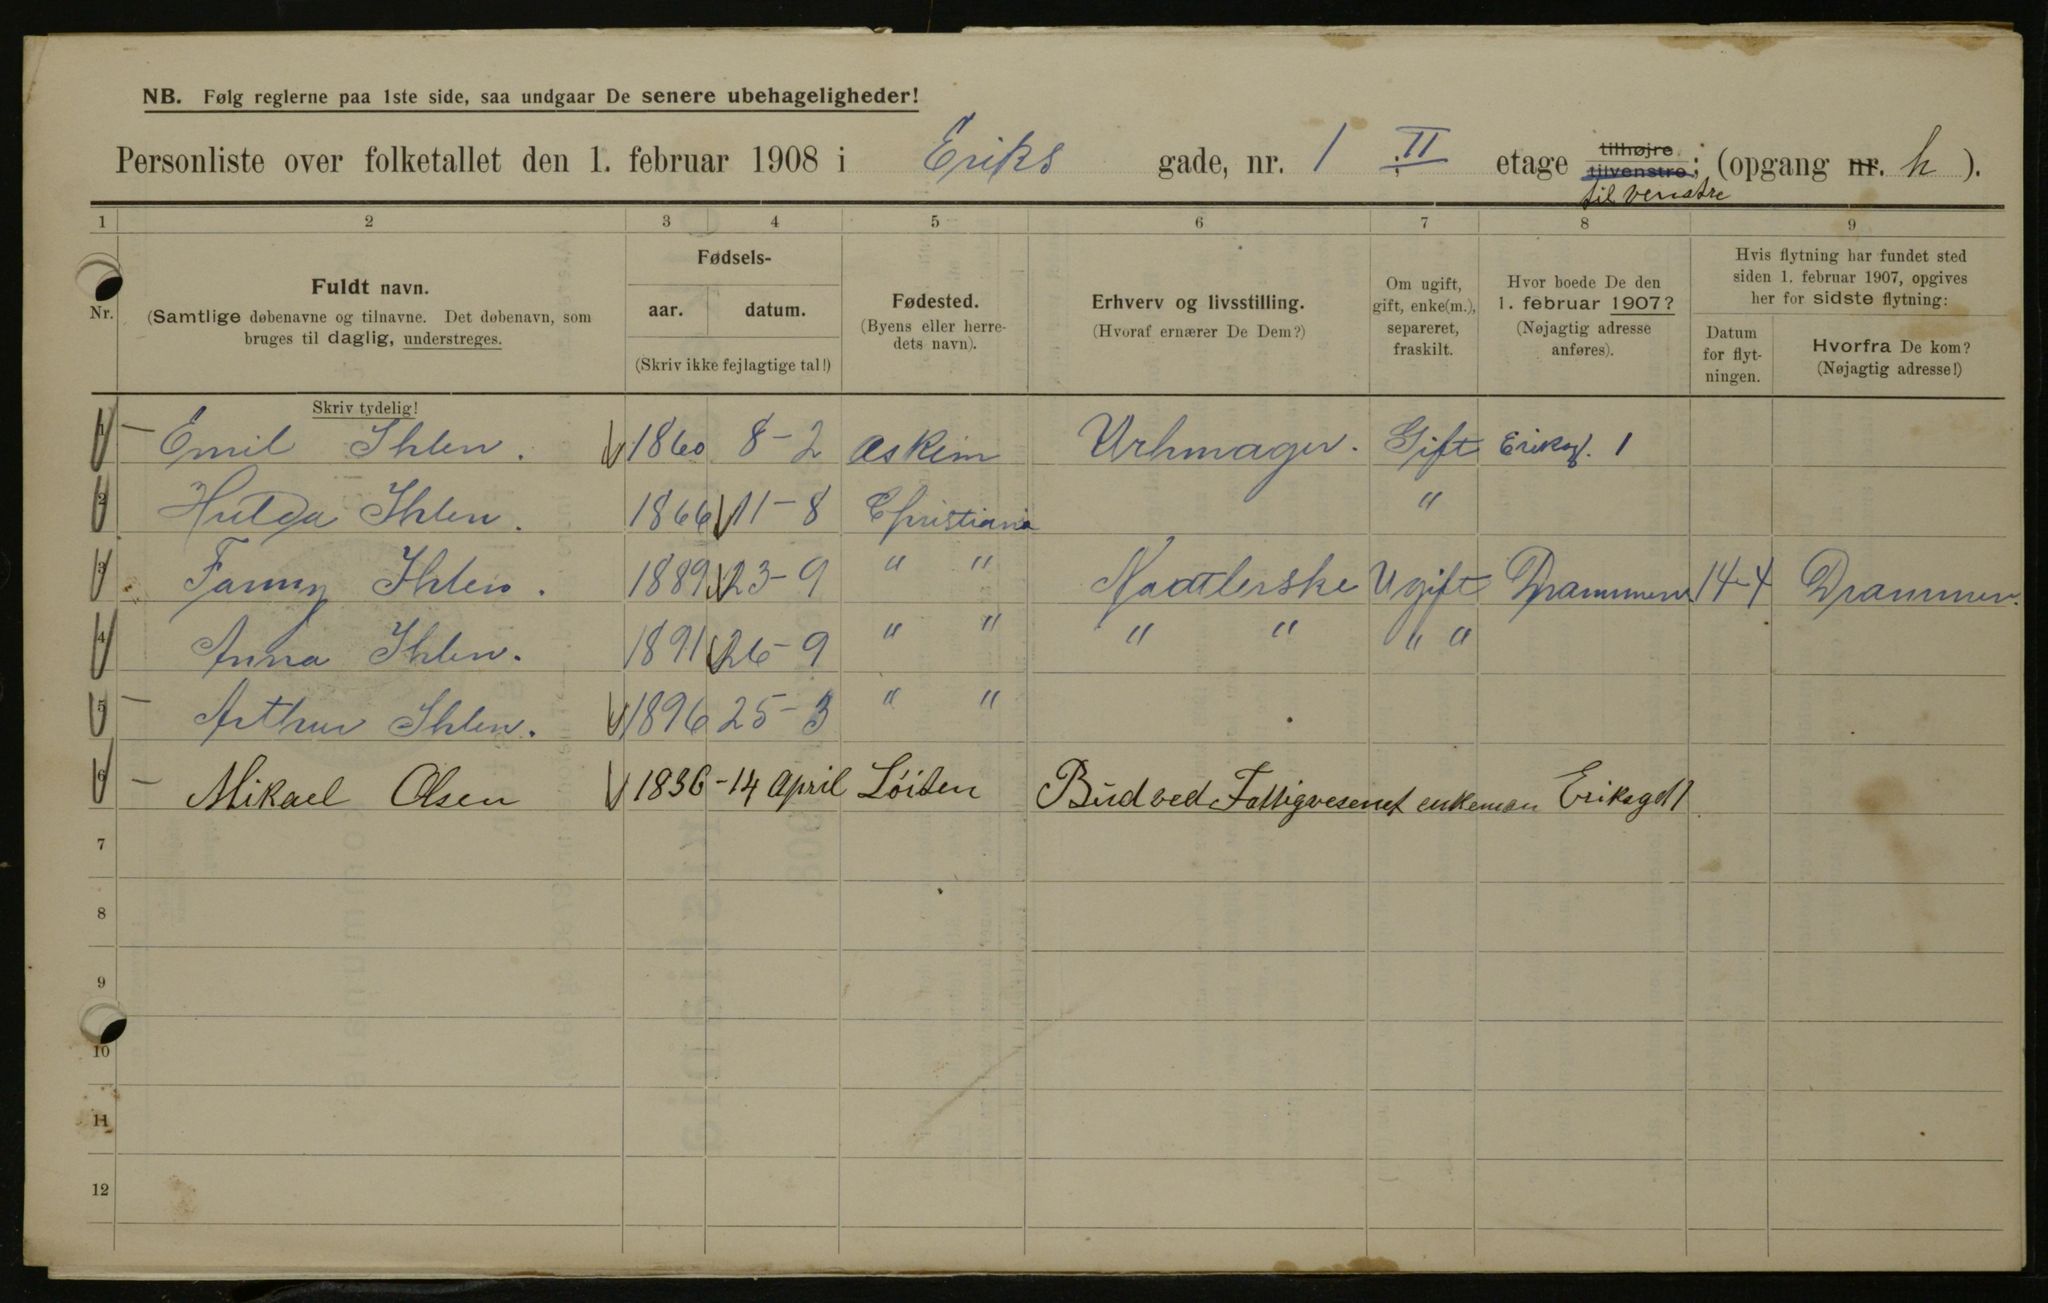 NB. Følg reglerne paa 1ste side, saa undgaar De senere ubehageligheder!
Personliste over folketallet den 1. februar 1908 i Eriks gade, nr. 1 II etage tilhøjre tilvenstre; (opgang nr. h).
til venstre
1 2 3 4 5 6 7 8 9
Nr. Fuldt navn. (Samtlige døbenavne og tilnavne. Det døbenavn, som bruges til daglig, understreges.
Fødsels- aar. datum. (Skriv ikke fejlagtige tal!)
Fødested. (Byens eller herredets navn).
Erhverv og livsstilling. (Hvoraf ernærer De Dem?)
Om ugift, gift, enke(m.), separeret, fraskilt.
Hvor boede De den 1. februar 1907? (Nøjagtig adresse anføres).
Hvis flytning har fundet sted siden 1. februar 1907, opgives her for sidste flytning:
Datum for flytningen.
Hvorfra De kom? (Nøjagtig adresse!)
Skriv tydelig!
1 Emil Ihlen. 1860 8-2 Askim Urhmager. Gift Eriksg. 1
2 Hulda Ihlen. 1866 11-8 Christiania "
3 Fanny Ihlen. 1889 23-9 " " Naatlerske Ugift Drammen 14-4 Drammen.
4 Anna Ihlen. 1891 26-9 " " " " " "
5 Arthur Ihlen. 1896 25-3 " "
6 Mikael Olsen 1836 -14 April Löiten Bud ved Fattigvesenet enkeman Eriksgd 1
7
8
9
10
11
12